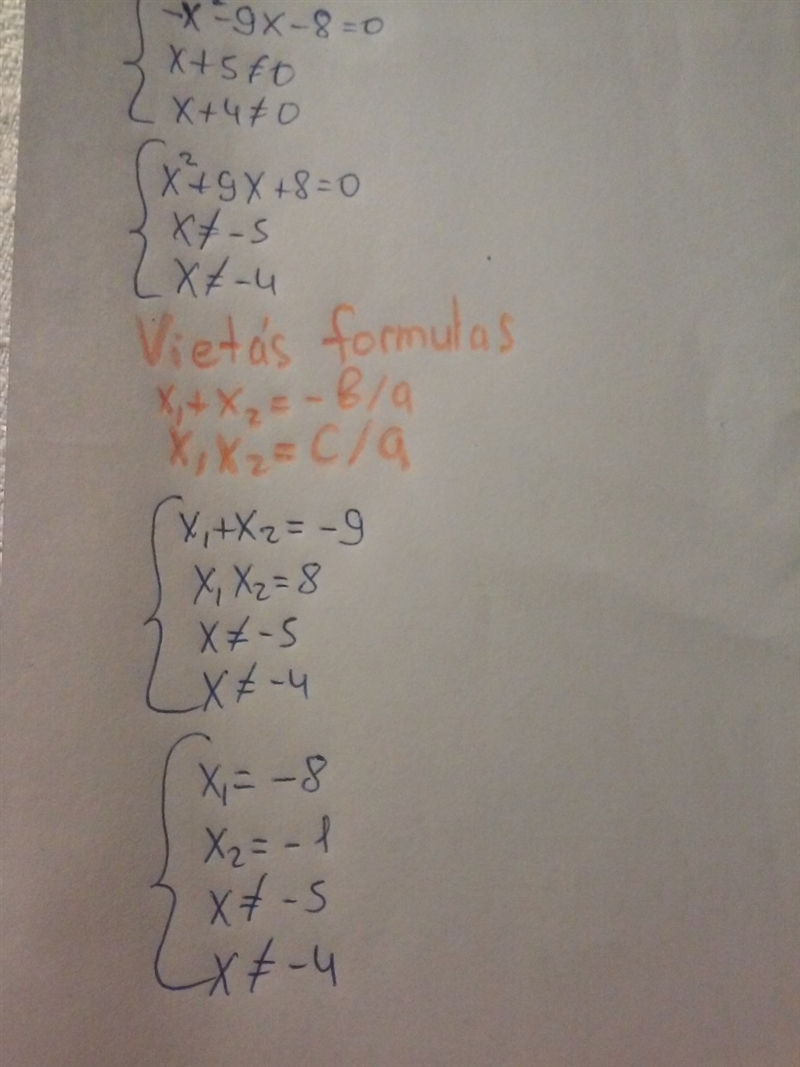 -x²-9x-8=0
x+5≠0
x+4≠0
x²+9x+8=0
x≠-5
x≠-4
Vieta's formulas
x₁+x₂=-b/a
x₁x₂=c/a
x₁+x₂=-9
x₁x₂=8
x≠-5
x≠-4
x₁=-8
x₂=-1
x≠-5
x≠-4